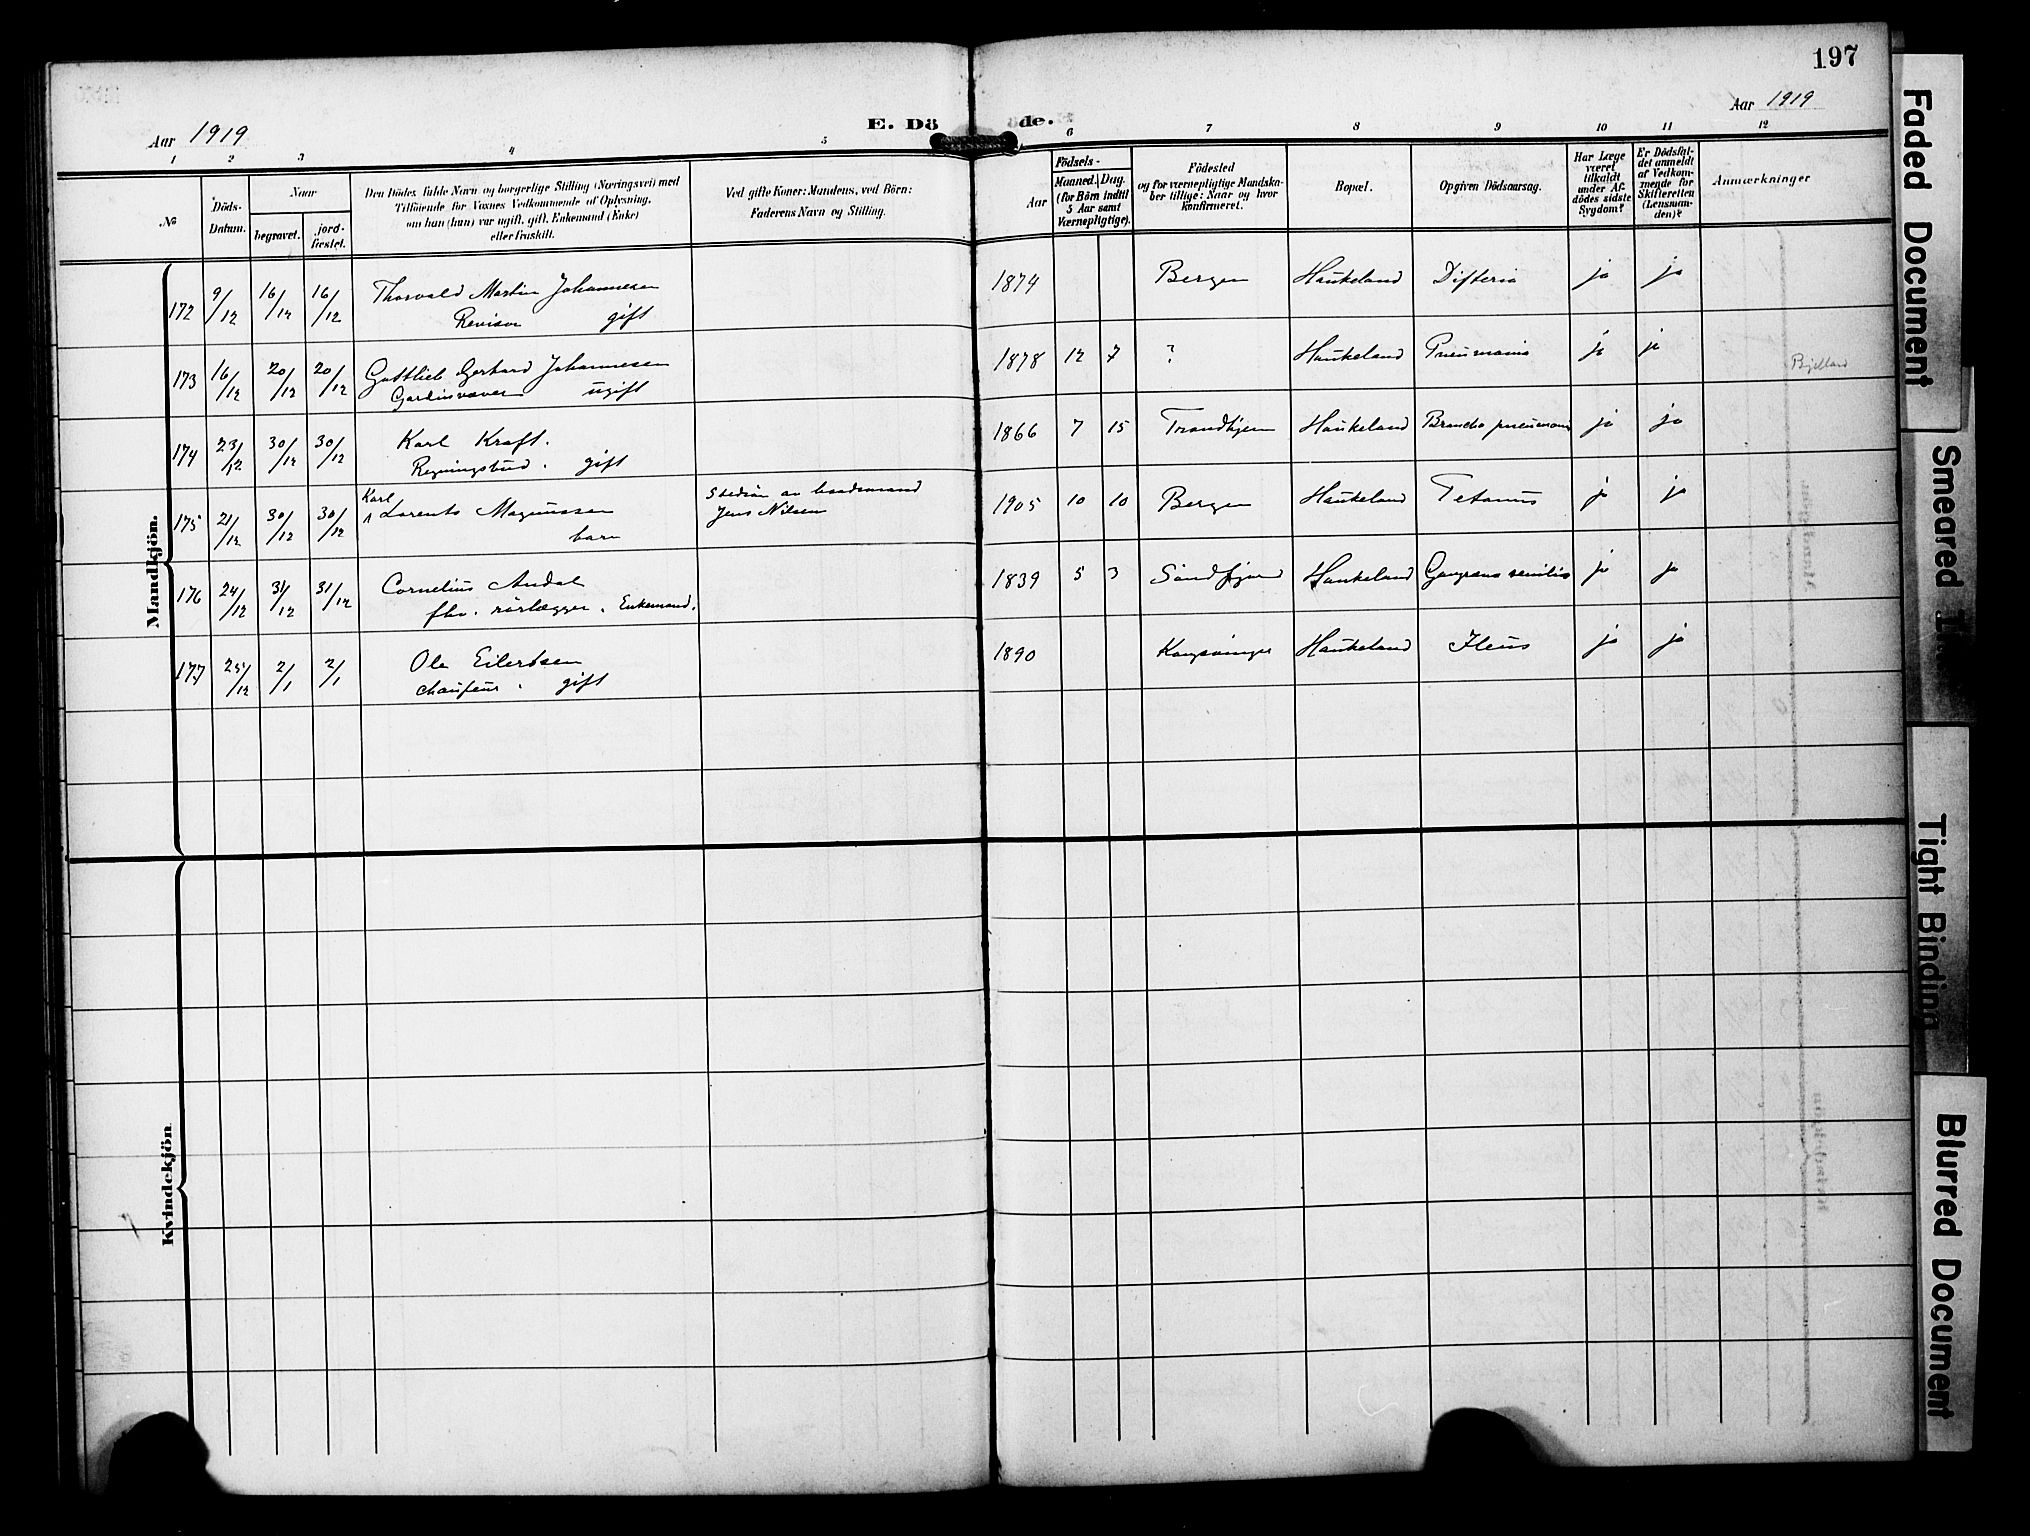 197
Aar 1919
E. Döde.
Aar 1919
1 2 3 4 5 6 7 8 9 10 11 12
No
Döds-Datum.
Naar
begravet.
jordfæstet.
Den Dödes fulde Navn og borgerlige Stilling (Næringsvei) med
Tilföiende for Voxnes Vedkommende af Oplysning,
om han (hun) var ugift, gift, Enkemand (Enke)
eller fraskilt.
Ved gifte Koner: Mandens, ved Börn:
Faderens Navn og Stilling.
Födsels-
Aar
Maaned. Dag.
(for Börn indtil
5 Aar samt
Værnepligtige).
Födested
og for værnepligtige Mandska-
ber tillige: Naar og hvor
konfirmeret.
Bopæl.
Opgiven Dödsaarsag.
Har Læge
været
tilkaldt
under Af-
dödes sidste
Sygdom?
Er Dödsfal-
det anmeldt
af Vedkom-
mende for
Skifteretten
(Lensman-
den)?
Anmærkninger
Mandkjön.
172 9/12 16/12 16/12 Thorvald Martin Johannesen 1874 Bergen Haukeland Difteria ja ja
Revisor gift
173 16/12 20/12 20/12 Gottlieb Gerhard Johannesen 1878 12 7 ? Haukeland Pneumonia ja ja Bjelland
Gardinvæver ugift
174 23/12 30/12 30/12 Karl Kraft. 1866 7 15 Trondhjem Haukeland Broncho pneumoni ja ja
Regningsbud. gift
175 21/12 30/12 30/12 Karl Lorents Magnussen Stedsön av baadsmand 1905 10 10 Bergen Haukeland Tetanus ja ja
barn Jens Nilsen
176 24/12 31/12 31/12 Cornelius Andal 1839 5 3 Søndfjord Haukeland Gangræna senilis ja ja
fhv. rørlægger. Enkemand.
177 25/12 2/1 2/1 Ole Eilertsen 1890 Kongsvinger Haukeland Ileus ja ja
chaufeur. gift
Kvindekjön
Faded Document
Smeared
Tight Binding
Blurred Document